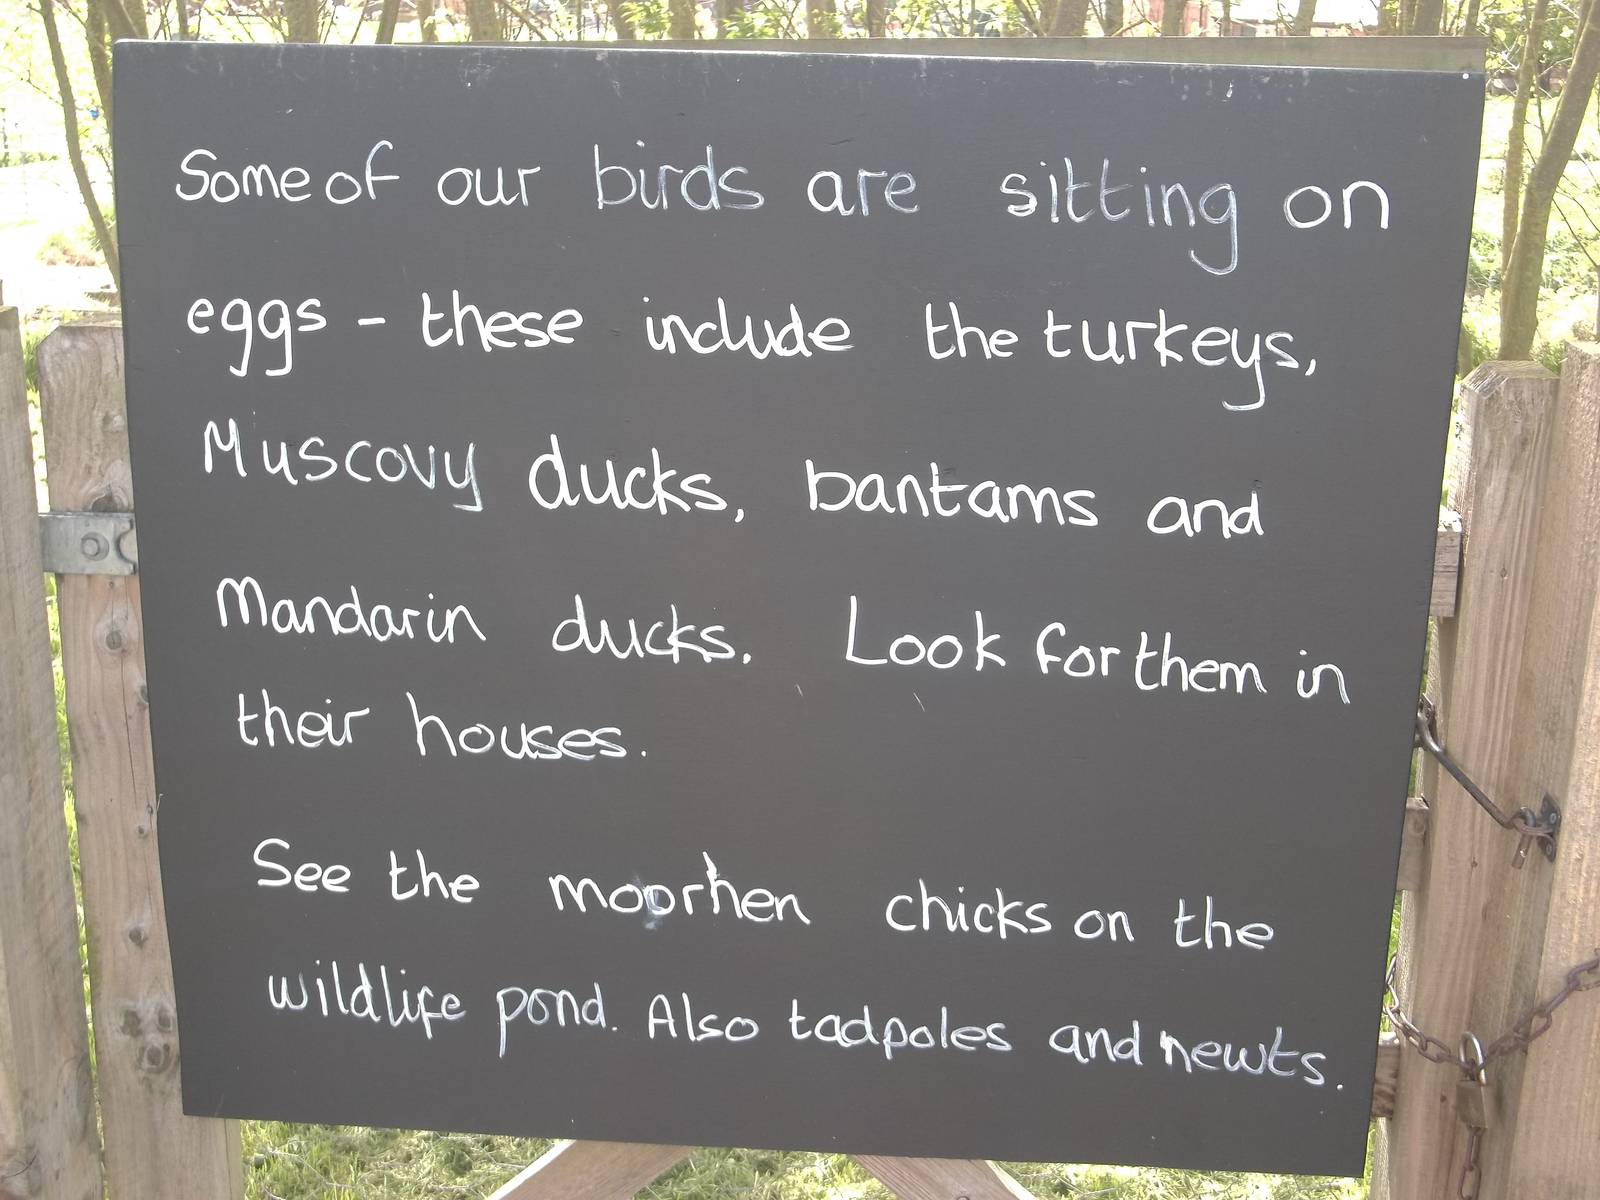 Some of our birds are sitting on
eggs - these include the turkeys,
Muscovy ducks, bantams and
Mandarin ducks. Look for them in
their houses.
See the moorhen chicks on the
wildlife pond. Also tadpoles and newts.